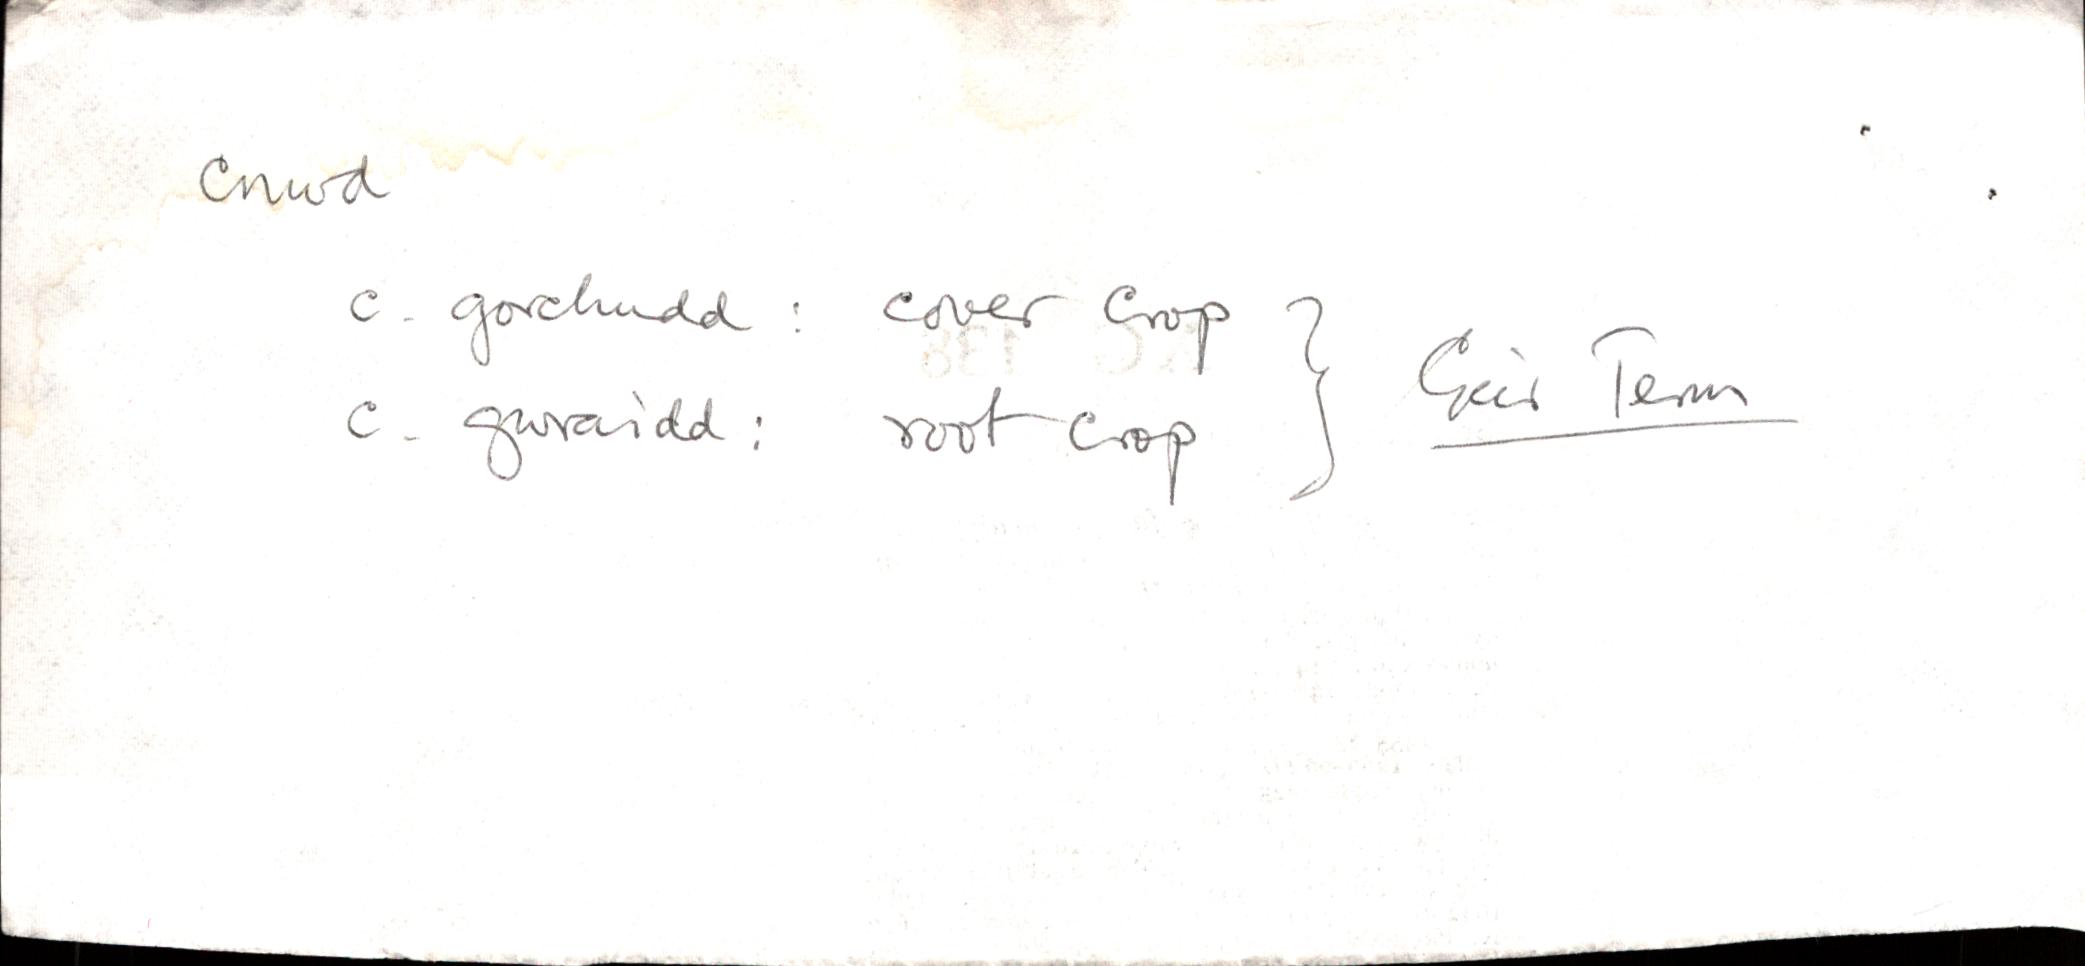 Cnwd
c. gorchudd : cover crop
c. gwraidd : root crop
Geir Term